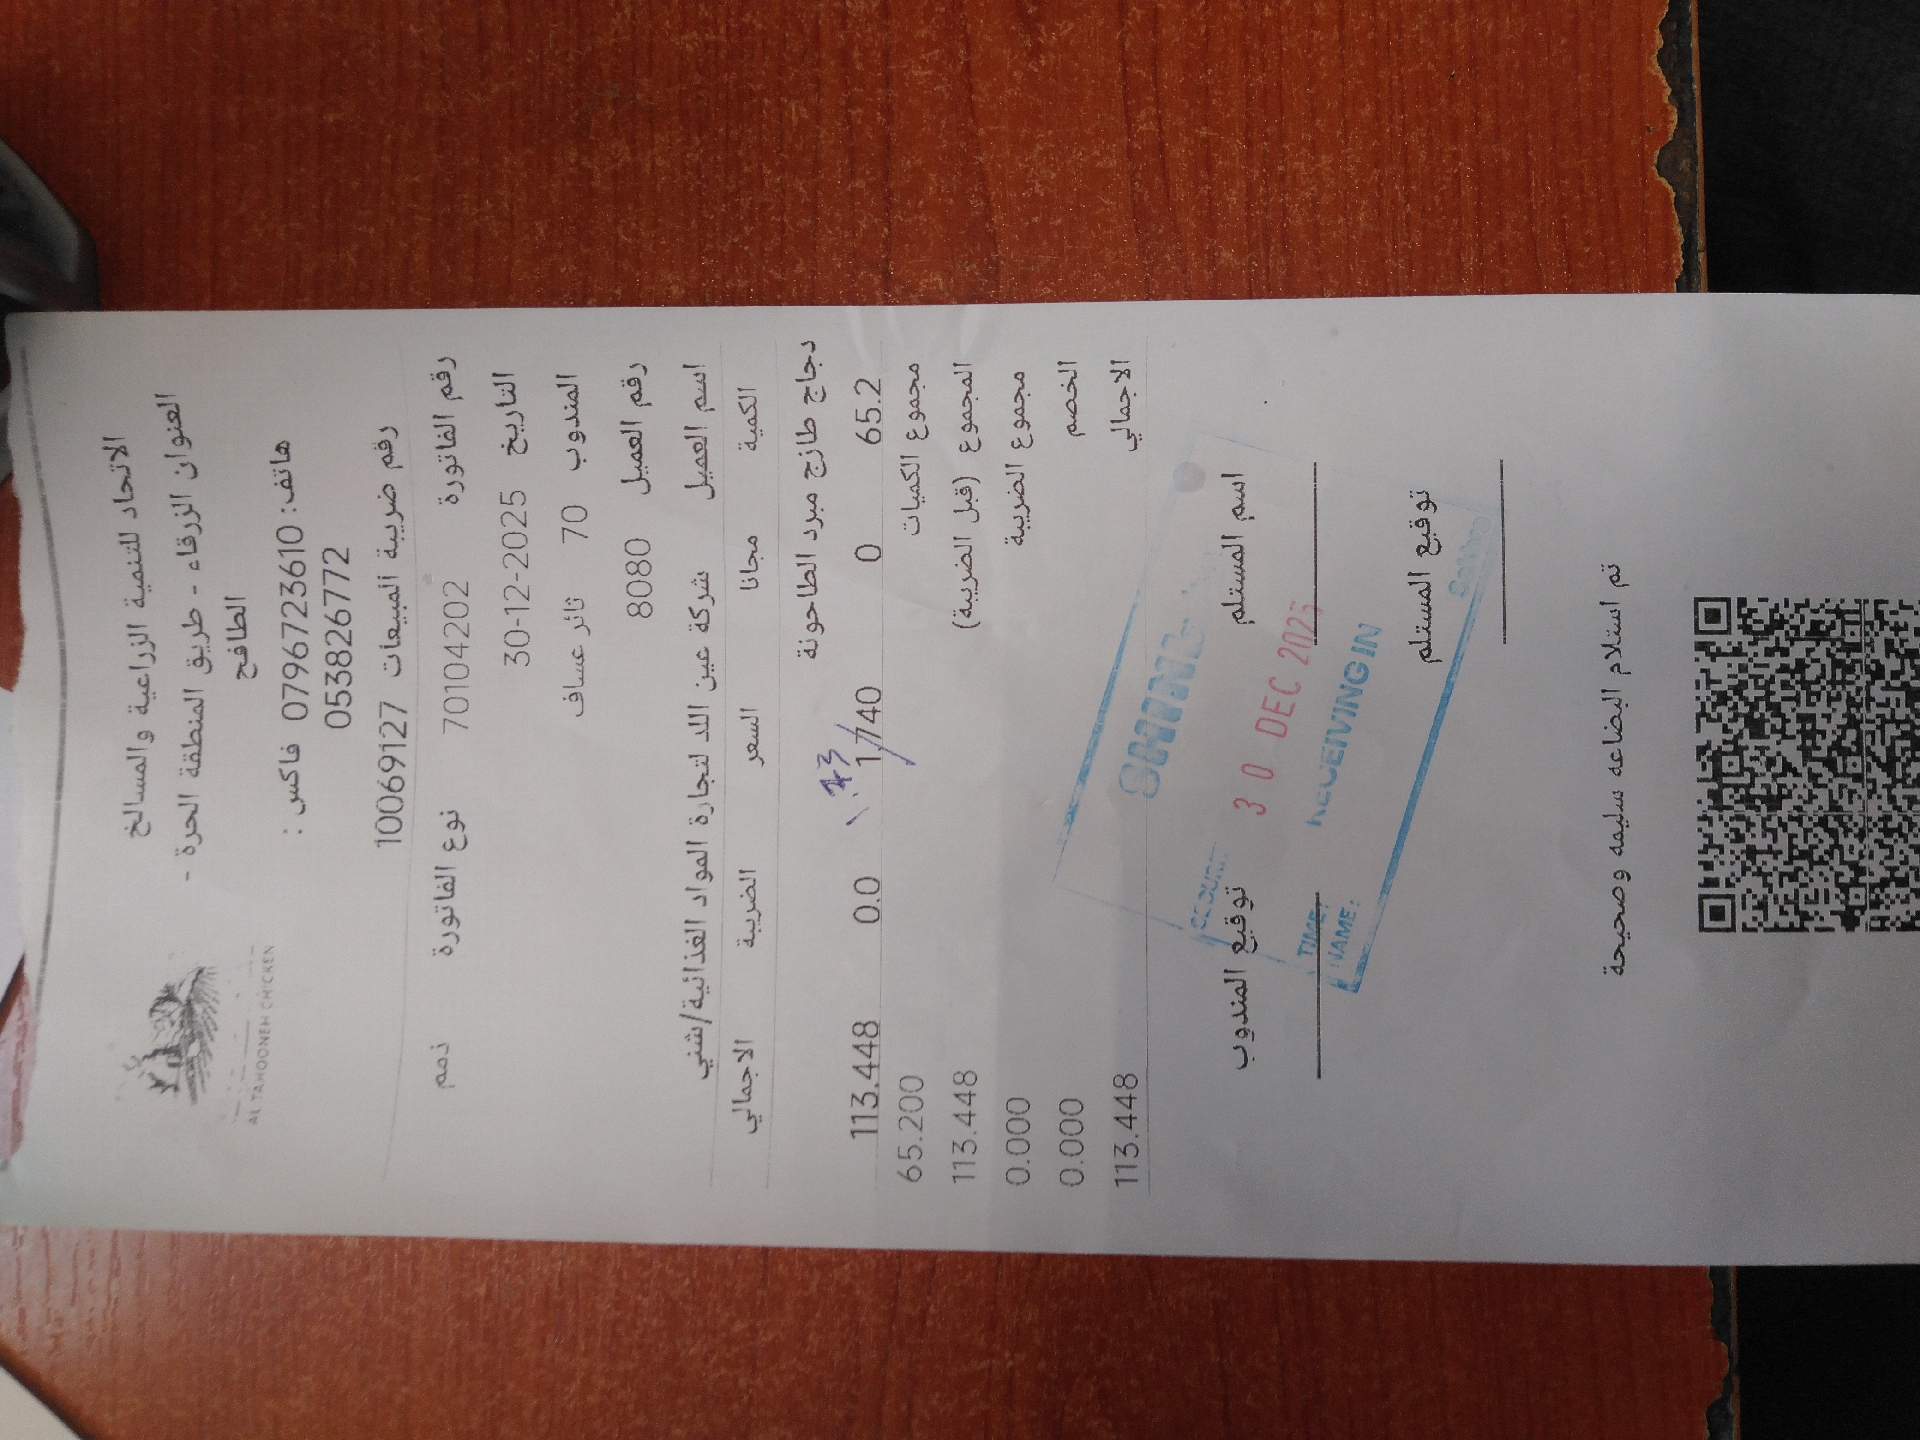 AL TAHOONEH CHICKEN
الاتحاد للتنمية الزراعية والمسالخ
العنوان الزرقاء - طريق المنطقة الحرة -
الطافح
هاتف: 0796723610 فاكس :
053826772
رقم ضريبة المبيعات 10069127
رقم الفاتورة 70104202 نوع الفاتورة ذمم
التاريخ 30-12-2025
المندوب 70 ثائر عساف
رقم العميل 8080
اسم العميل شركة عين اللد لتجارة المواد الغذائية/شني
الكمية مجانا السعر الضريبة الاجمالي
دجاج طازج مبرد الطاحونة
65.2 0 1.740 0.0 113.448
مجموع الكميات 65.200
المجموع (قبل الضريبة) 113.448
مجموع الضريبة 0.000
الخصم 0.000
الاجمالي 113.448
اسم المستلم توقيع المندوب
30 DEC 2025
RECEIVING IN
TIME:
NAME:
توقيع المستلم
تم استلام البضاعه سليمه وصحيحة